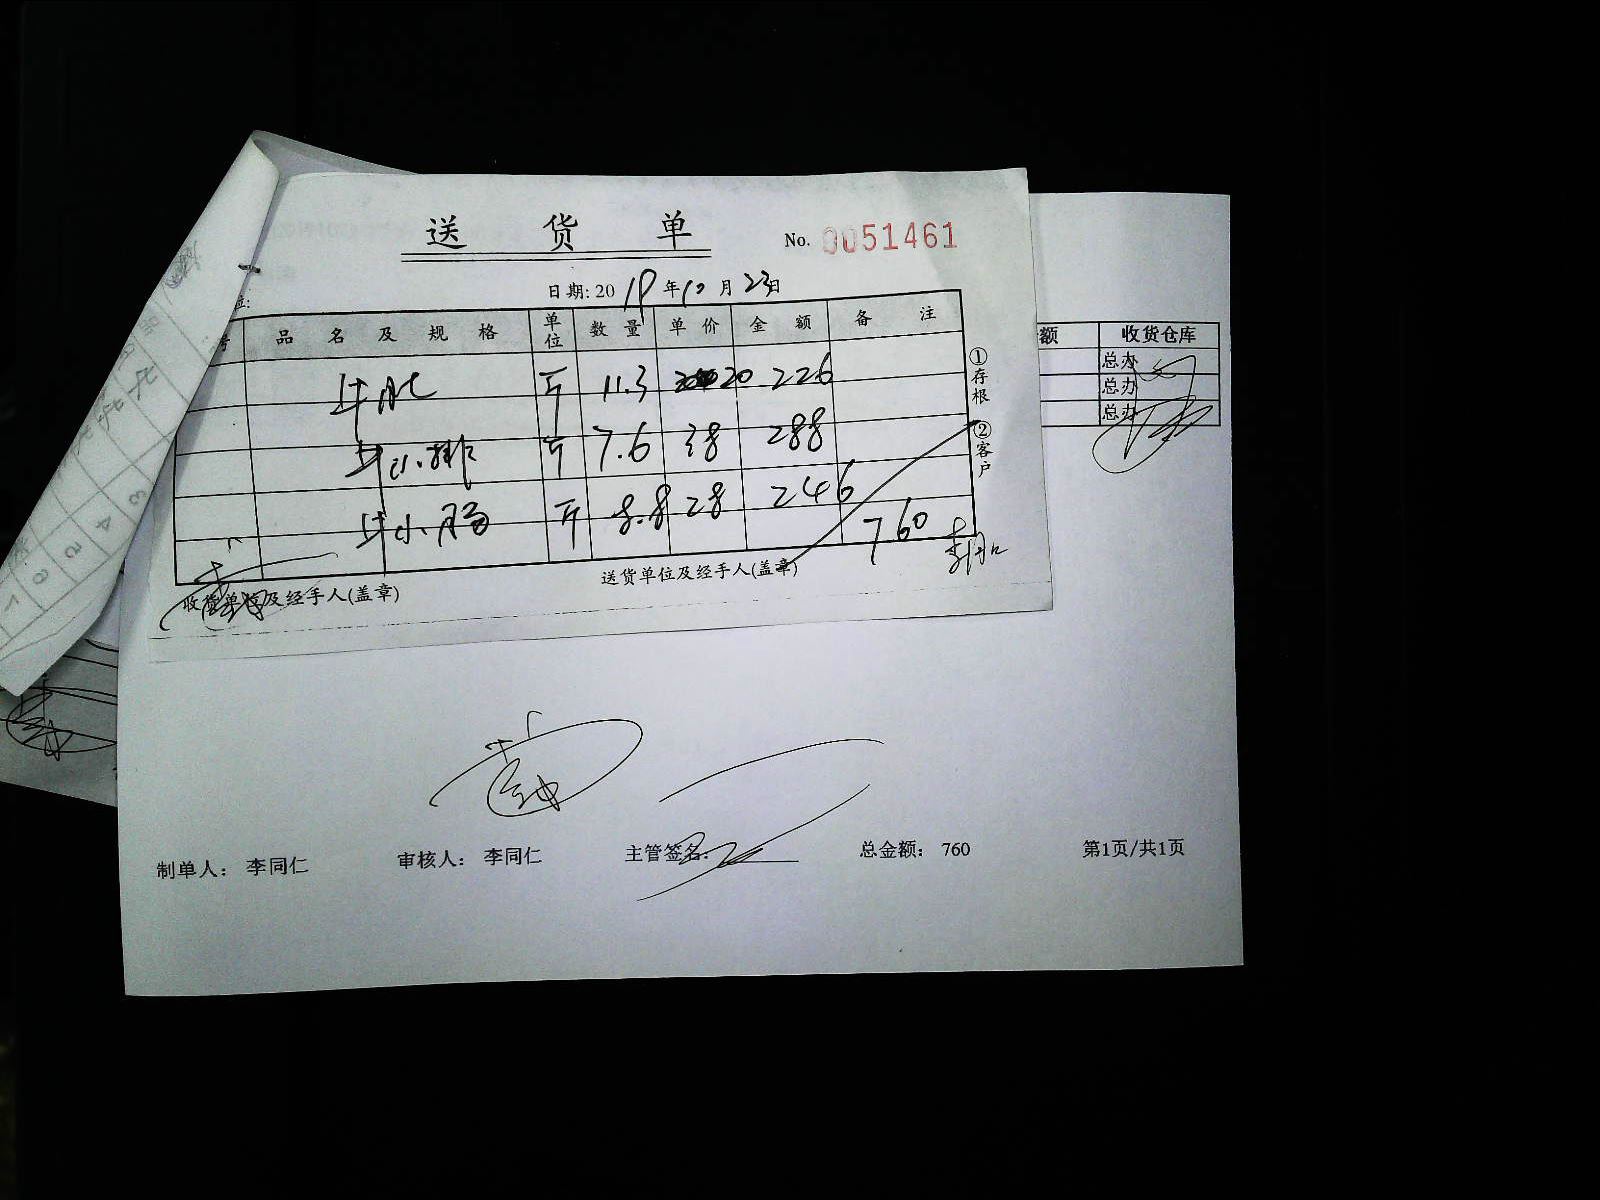 送 货 单
No. 0051461
日期: 2019年10月23日
品 名 及 规 格 单位 数 量 单 价 金 额 备 注
牛肚 斤 11.3 20 226
牛小排 斤 7.6 38 288
牛小肠 斤 8.8 28 246
760
收货单位及经手人(盖章)
送货单位及经手人(盖章)
①存根 ②客户
额 收货仓库
总办
总办
总办
制单人： 李同仁 审核人： 李同仁 主管签名: 总金额： 760 第1页/共1页
3
4
5
6
7